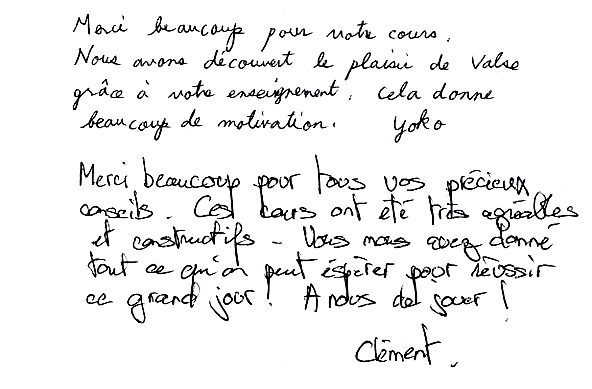 Merci beaucoup pour votre cours.
Nous avons découvert le plaisir de Valse
grâce à votre enseignement. Cela donne
beaucoup de motivation. Yoko
Merci beaucoup pour tous vos précieux
conseils. Cest cours ont été très agréables
et constructifs - Vous nous avez donné
tout ce qu'on peut éspérer pour réussir
ce grand jour ! A nous de jouer !
Clément.